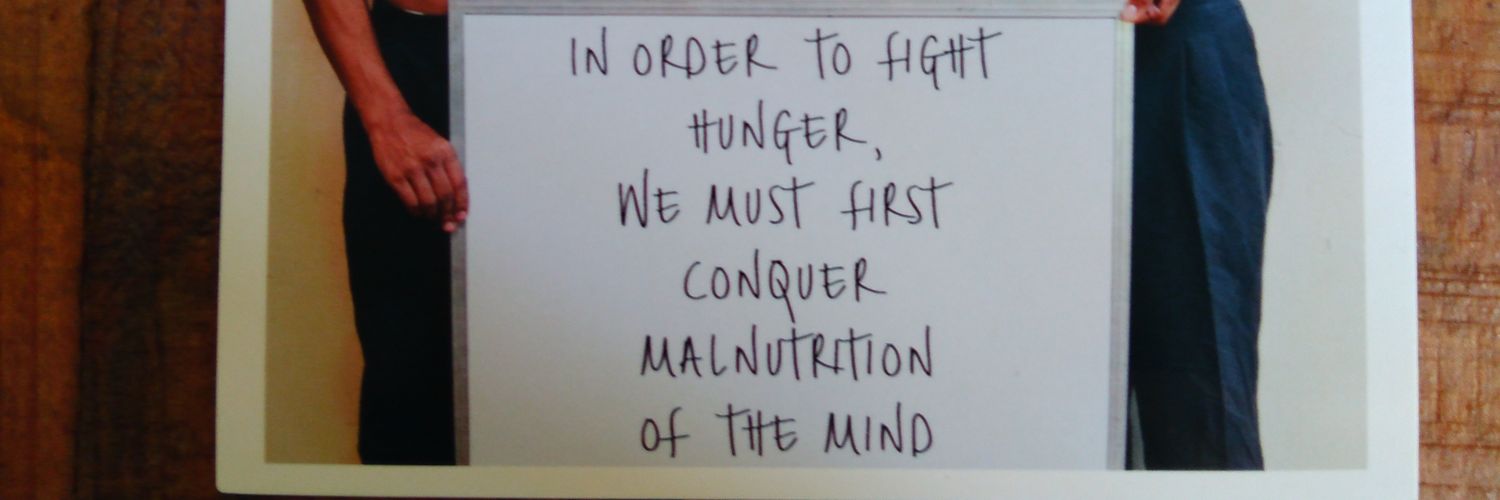 IN ORDER TO FIGHT
HUNGER,
WE MUST FIRST
CONQUER
MALNUTRITION
OF THE MIND